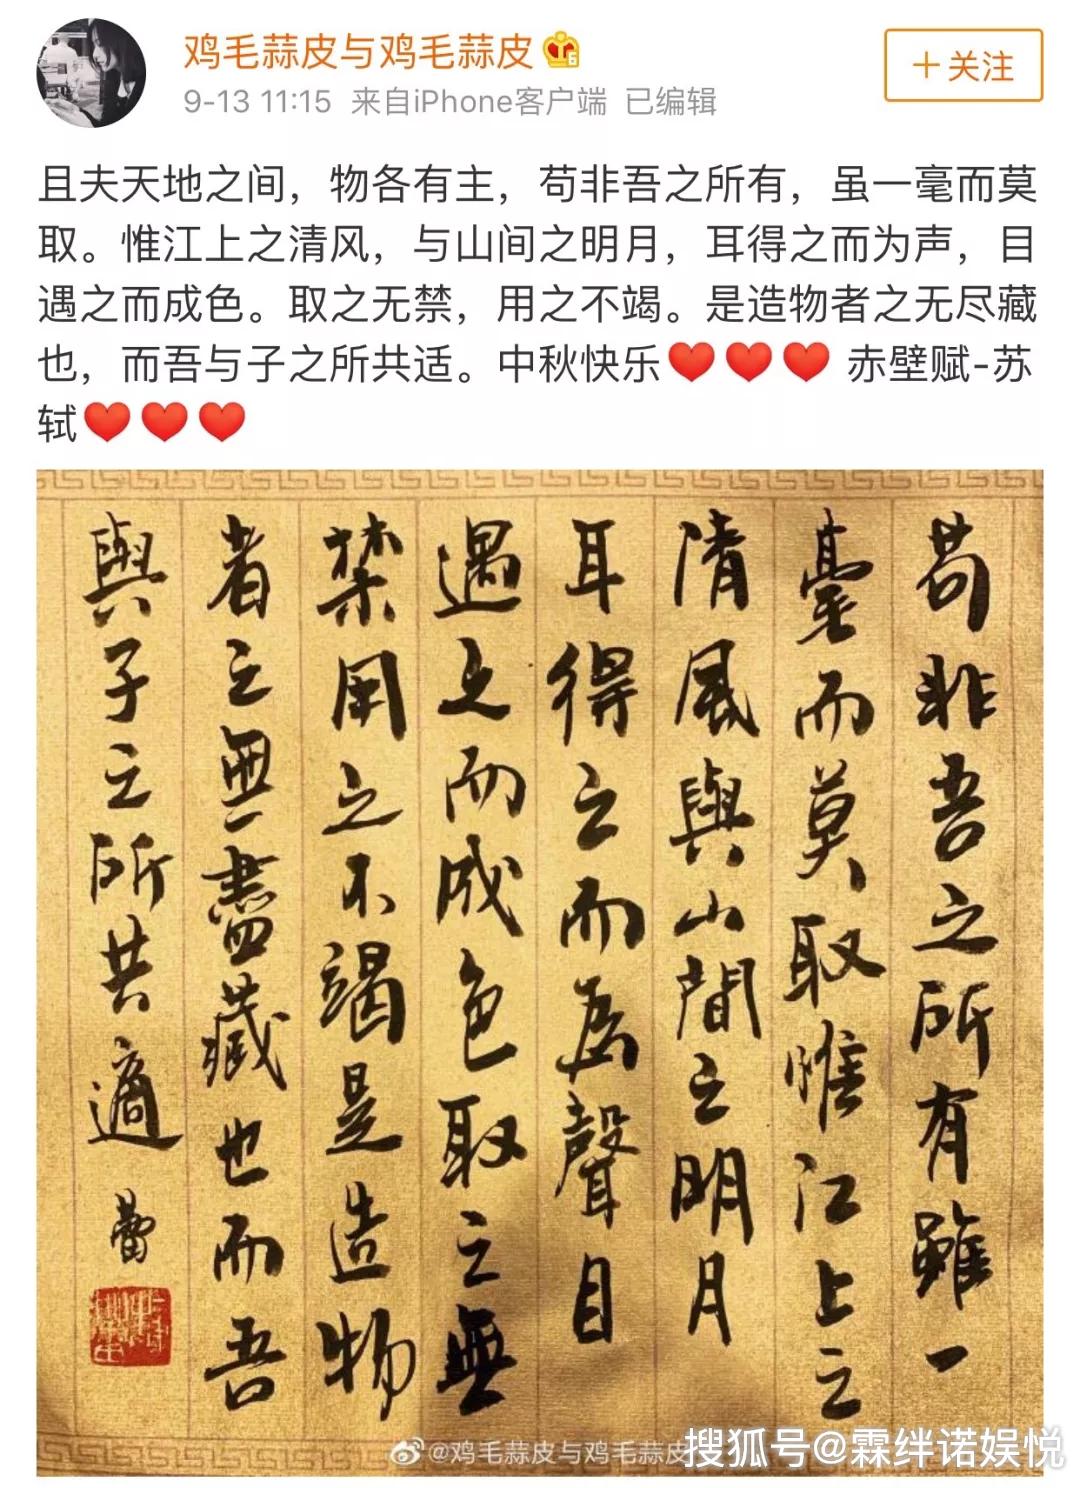 鸡毛蒜皮与鸡毛蒜皮
6
9-13 11:15 来自iPhone客户端 已编辑
+关注
且夫天地之间，物各有主，苟非吾之所有，虽一毫而莫
取。惟江上之清风，与山间之明月，耳得之而为声，目
遇之而成色。取之无禁，用之不竭。是造物者之无尽藏
也，而吾与子之所共适。中秋快乐❤️❤️❤️ 赤壁赋-苏
轼❤️❤️❤️
苟非吾之所有雖一
毫而莫取惟江上之
清風與山間之明月
耳得之而為聲目
遇之而成色取之無
禁用之不竭是造物
者之無盡藏也而吾
與子之所共適
蕾
@鸡毛蒜皮与鸡毛蒜皮
搜狐号@霖绊诺娱悦